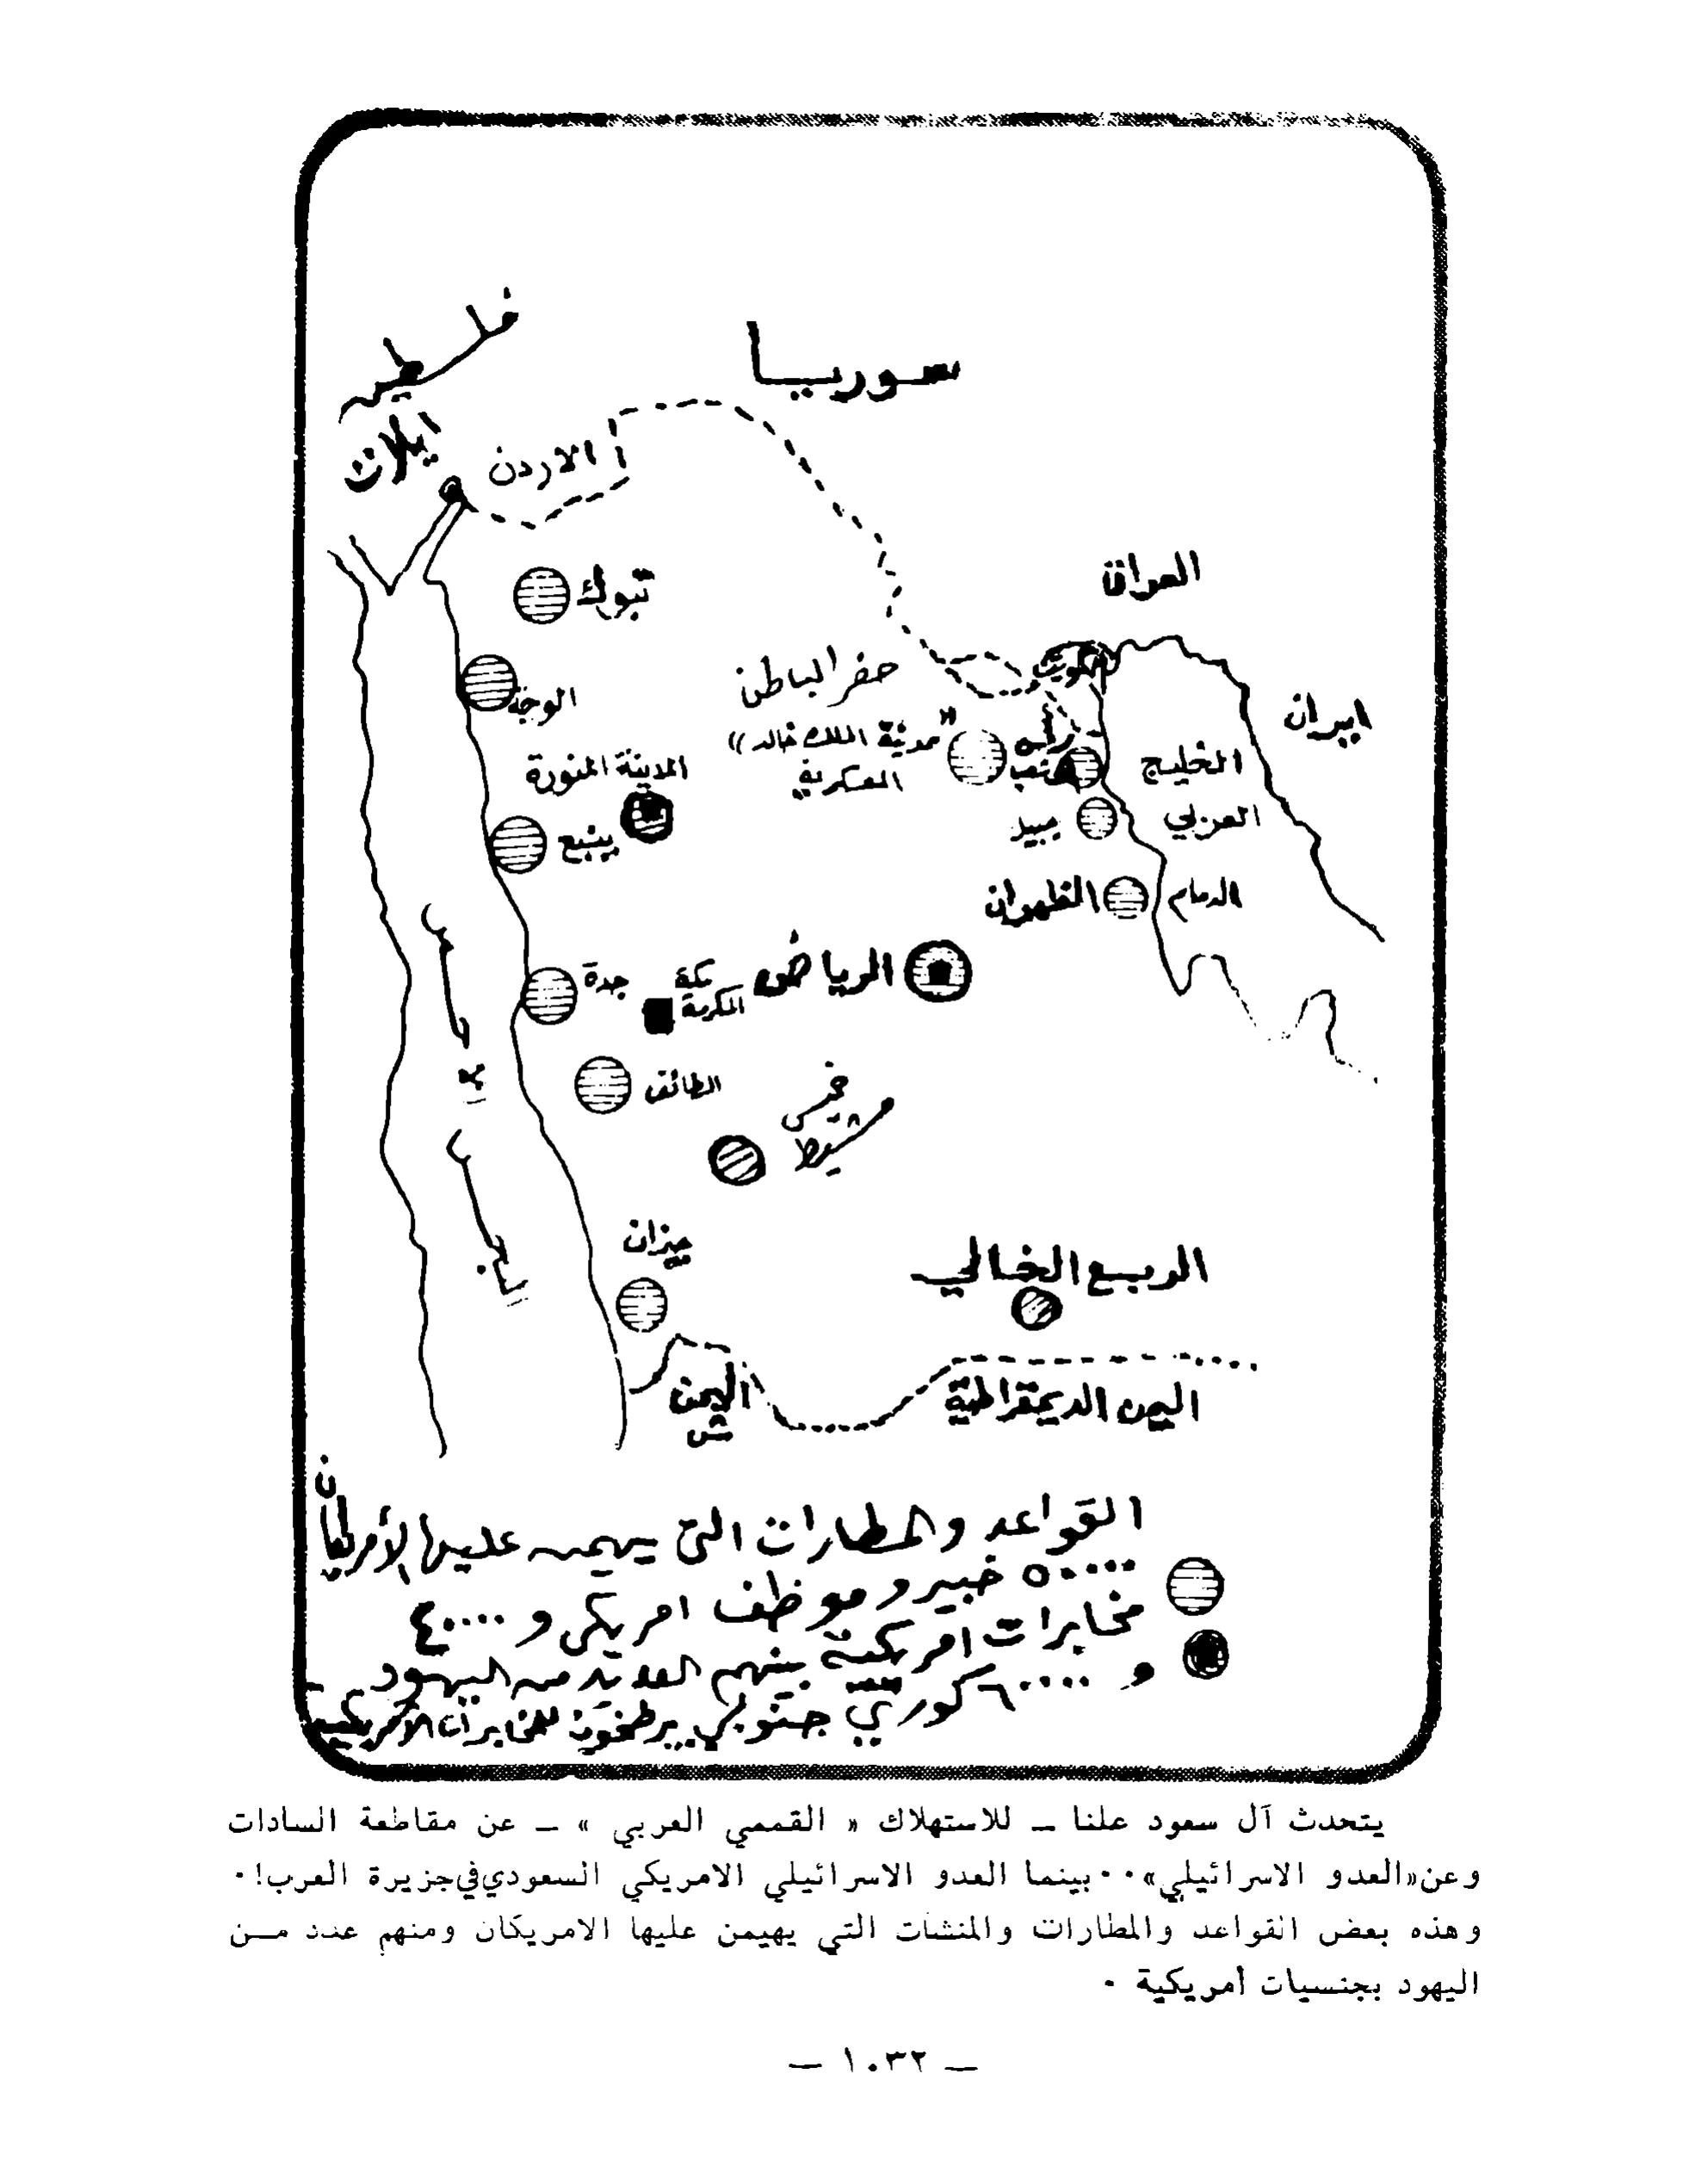 فلسطين
سوريا
ايلات
الاردن
العراق
تبوك
الكويت
حفر الباطن
الوجه
ايران
" مدينة الملك خالد ))
رأس
مشعب
العسكرية
الخليج
المدينة المنورة
العربي
ينبع
جبيل
الظهران
الدمام
الرياض
مكة
المكرمة
جدة
الطائف
خميس
مشيط
البحر الاحمر
جيزان
الربع الخالي
اليمن
ش
اليمن الديمقراطية
القواعد والمطارات التي يهيمن عليها الأمريكان
٥٠٠٠٠ خبير وموظف امريكي و ٤٠٠٠٠
مخابرات امريكية بينهم العديد من اليهود
و ٦٠٠٠٠ كوري جنوبي للمخابرات الامريكية
يتحدث آل سعود علنا ــ للاستهلاك « القممي العربي » ــ عن مقاطعة السادات
وعن«العدو الاسرائيلي»٠٠ بينما العدو الاسرائيلي الامريكي السعودي في جزيرة العرب!٠
وهذه بعض القواعد والمطارات والمنشآت التي يهيمن عليها الامريكان ومنهم عدد مــن
اليهود بجنسيات أمريكية ٠
— ١٠٣٢ —